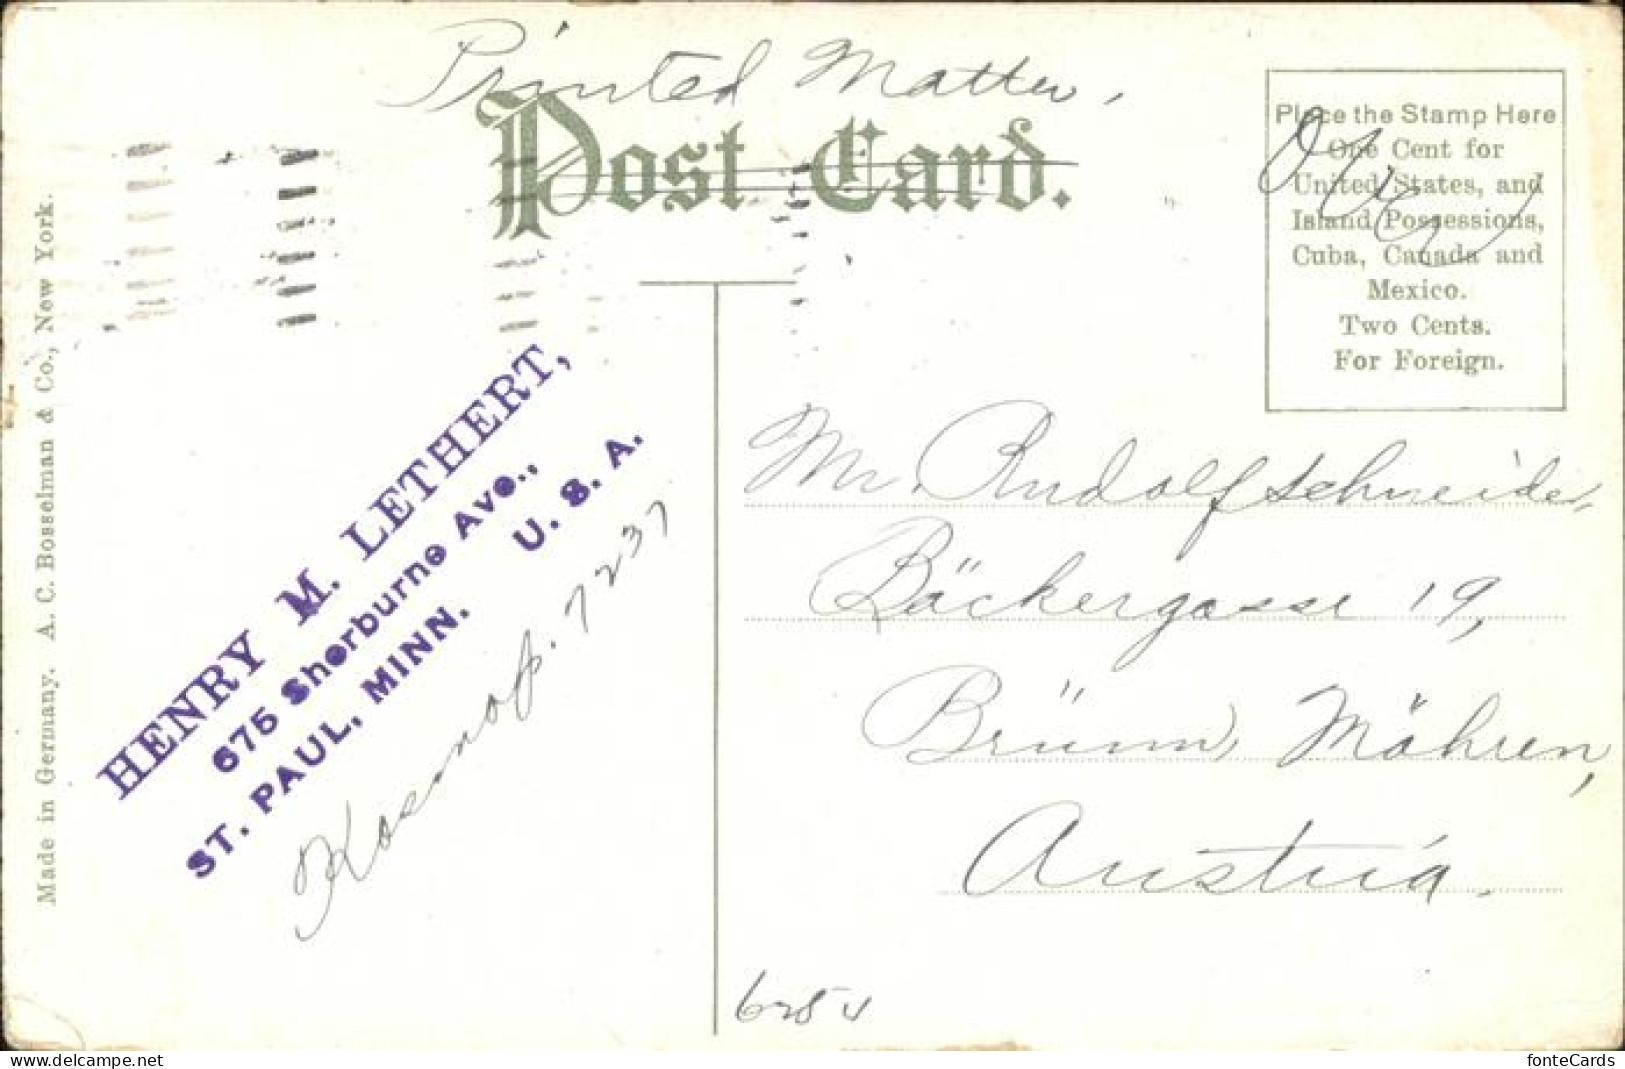 Printed Matter,
Post Card.
Place the Stamp Here
One Cent for
United States, and
Island Possessions,
Cuba, Canada and
Mexico.
Two Cents.
For Foreign.
Over
Made in Germany. A. C. Bosselman & Co., New York.
HENRY M. LETHERT,
675 Sherburne Ave.,
ST. PAUL, MINN. U. S. A.
Kosmop. 7237
Mr. Rudolf Schneider,
Bäckergasse 19,
Brünn, Mähren,
Austria.
fonteCards